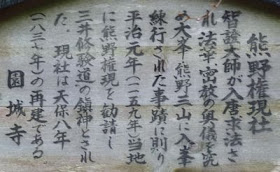 熊野権現社
智證大師が入唐求法さ
れ法華、密教の奥儀を究
め大峯・熊野三山に入峯
練行された事蹟に則り
平治元年(一一五九年)当地
に熊野権現を勧請し
三井修験道の鎮神とされ
た。現社は天保八年
(一八三七年)の再建である
園城寺